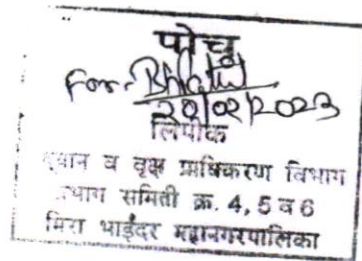 पोच
For-
20/02/2023
लिपीक
उद्यान व वृक्ष प्राधिकरण विभाग
प्रभाग समिती क्र. 4, 5 व 6
मिरा भाईंदर महानगरपालिका